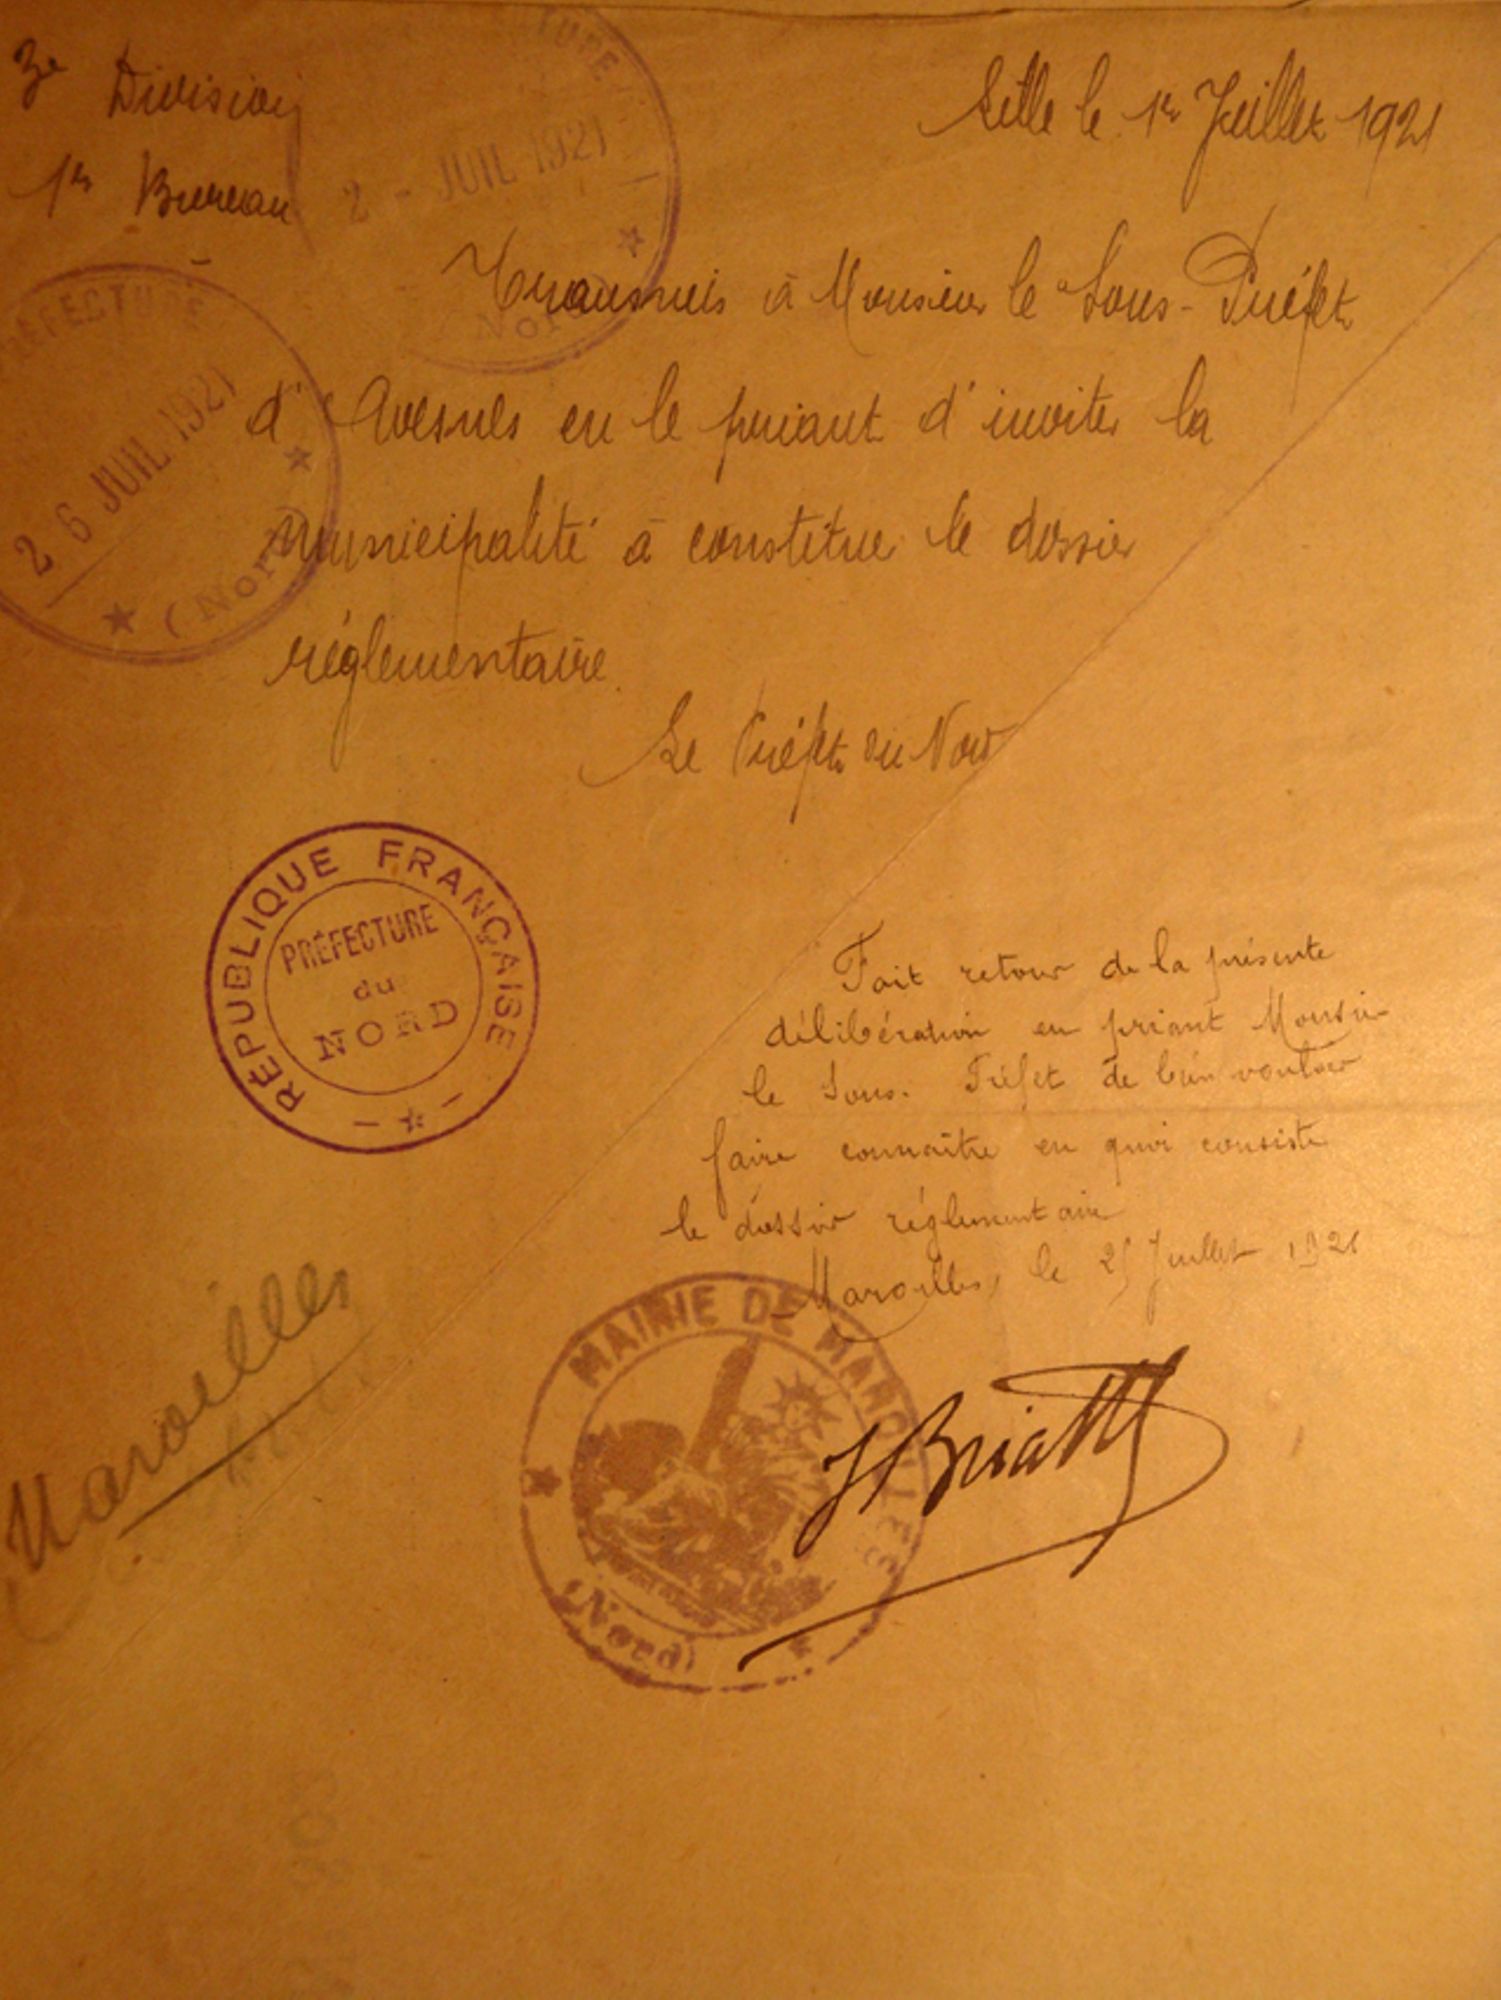 3e Division
1er Bureau
Lille le 1er Juillet 1921
2 - JUIL 1921
(Nord)
Transmis à Monsieur le Sous-Préfet
d'Avesnes en le priant d'inviter la
municipalité à constituer le dossier
réglementaire.
PRÉFECTURE
26 JUIL 1921
(Nord)
Le Préfet du Nord
RÉPUBLIQUE FRANÇAISE
PRÉFECTURE
du
NORD
Fait retour de la présente
délibération en priant Monsieur
le Sous-Préfet de bien vouloir
faire connaître en quoi consiste
le dossier réglementaire
Maroilles, le 25 Juillet 1921
Maroilles
MAIRIE DE MAROILLES
(Nord)